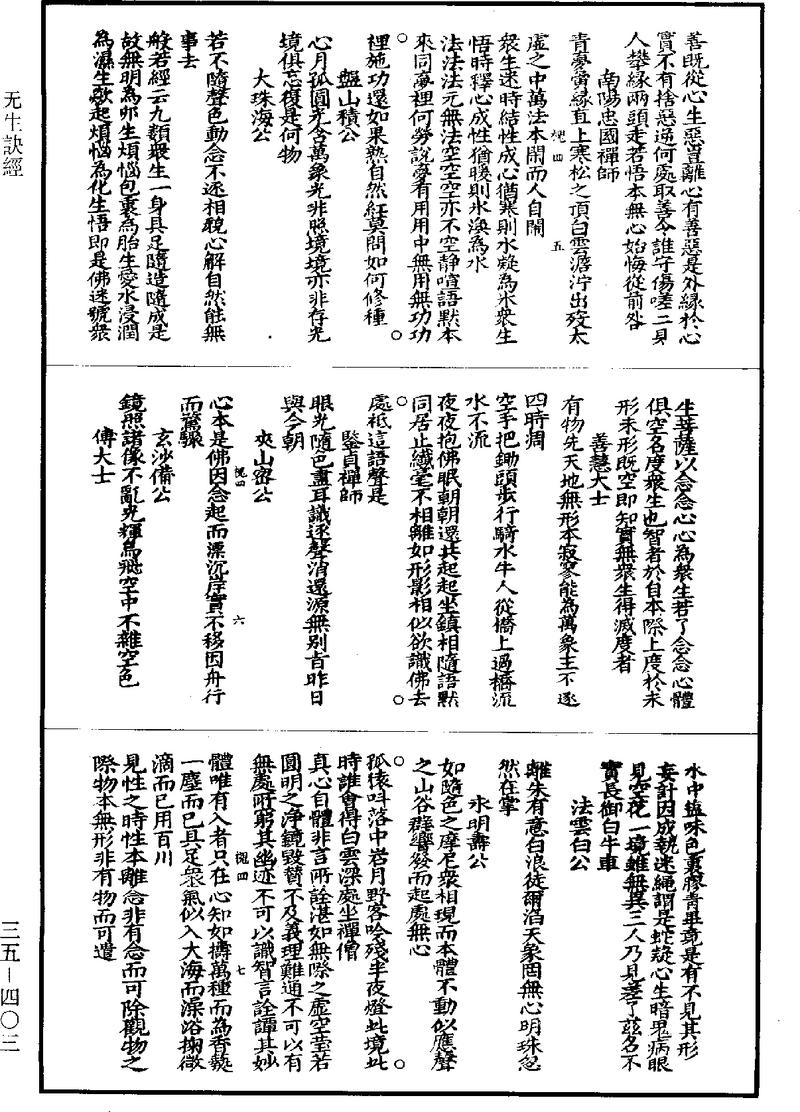 善既從心生惡豈離心有善惡是外緣於心
實不有捨惡送何處取善令誰守傷嗟二見
人攀緣兩頭走若悟本無心始悔從前咎
南陽忠國禪師
青蘿夤緣直上寒松之頂白雲澹泞出没太
虛之中萬法本閑而人自鬧
衆生迷時結性成心猶寒則水凝為氷衆生
悟時釋心成性猶暖則氷渙為水
法法法元無法空空空亦不空静喧語默本
來同夢裡何勞說夢有用用中無用無功功
裡施功還如果熟自然紅莫問如何修種
盤山積公
心月孤圓光含萬象光非照境境亦非存光
境俱忘復是何物
大珠海公
若不隨聲色動念不逐相貌心解自然能無
事去
般若經云九類衆生一身具足隨造隨成是
故無明為卵生煩惱包裹為胎生愛水浸潤
為濕生歘起煩惱為化生悟即是佛迷號衆
生菩薩以念念心心為衆生若了念念心體
俱空名度衆生也智者於自本際上度於未
形未形既空即知實無衆生得滅度者
善慧大士
有物先天地無形本寂寥能為萬象主不逐
四時凋
空手把鋤頭步行騎水牛人從橋上過橋流
水不流
夜夜抱佛眠朝朝還共起起坐鎮相隨語默
同居止纎毫不相離如形影相似欲識佛去
處袛這語聲是
鑒貞禪師
眼光隨色盡耳識逐聲消還源無别旨昨日
與今朝
夾山密公
心本是佛因念起而漂沉岸實不移因舟行
而驚驟
玄沙備公
鏡照諸像不亂光輝鳥飛空中不雜空色
傅大士
水中鹽味色裏膠青畢竟是有不見其形
妄計因成執迷繩謂是蛇疑心生暗鬼病眼
見空花一境雖無異三人乃見差了兹名不
實長御白牛車
法雲白公
離朱有意白浪徒爾滔天象罔無心明珠忽
然在掌
永明壽公
如隨色之摩尼衆相現而本體不動似應聲
之山谷群響發而起處無心
孤猿叫落中岩月野客吟殘半夜燈此境此
時誰會得白雲深處坐禪僧
真心自體非言所詮湛如無際之虛空瑩若
圓明之淨鏡毁贊不及義理難通不可以有
無處所窮其幽迹不可以識智言詮譚其妙
體唯有入者只在心知如擣萬種而為香爇
一塵而已具足衆氣似入大海而澡浴掬微
滴而已用百川
見性之時性本離念非有念而可除觀物之
際物本無形非有物而可遣
槐四
五
槐四
六
槐四
七
无生訣經
三五－四〇三